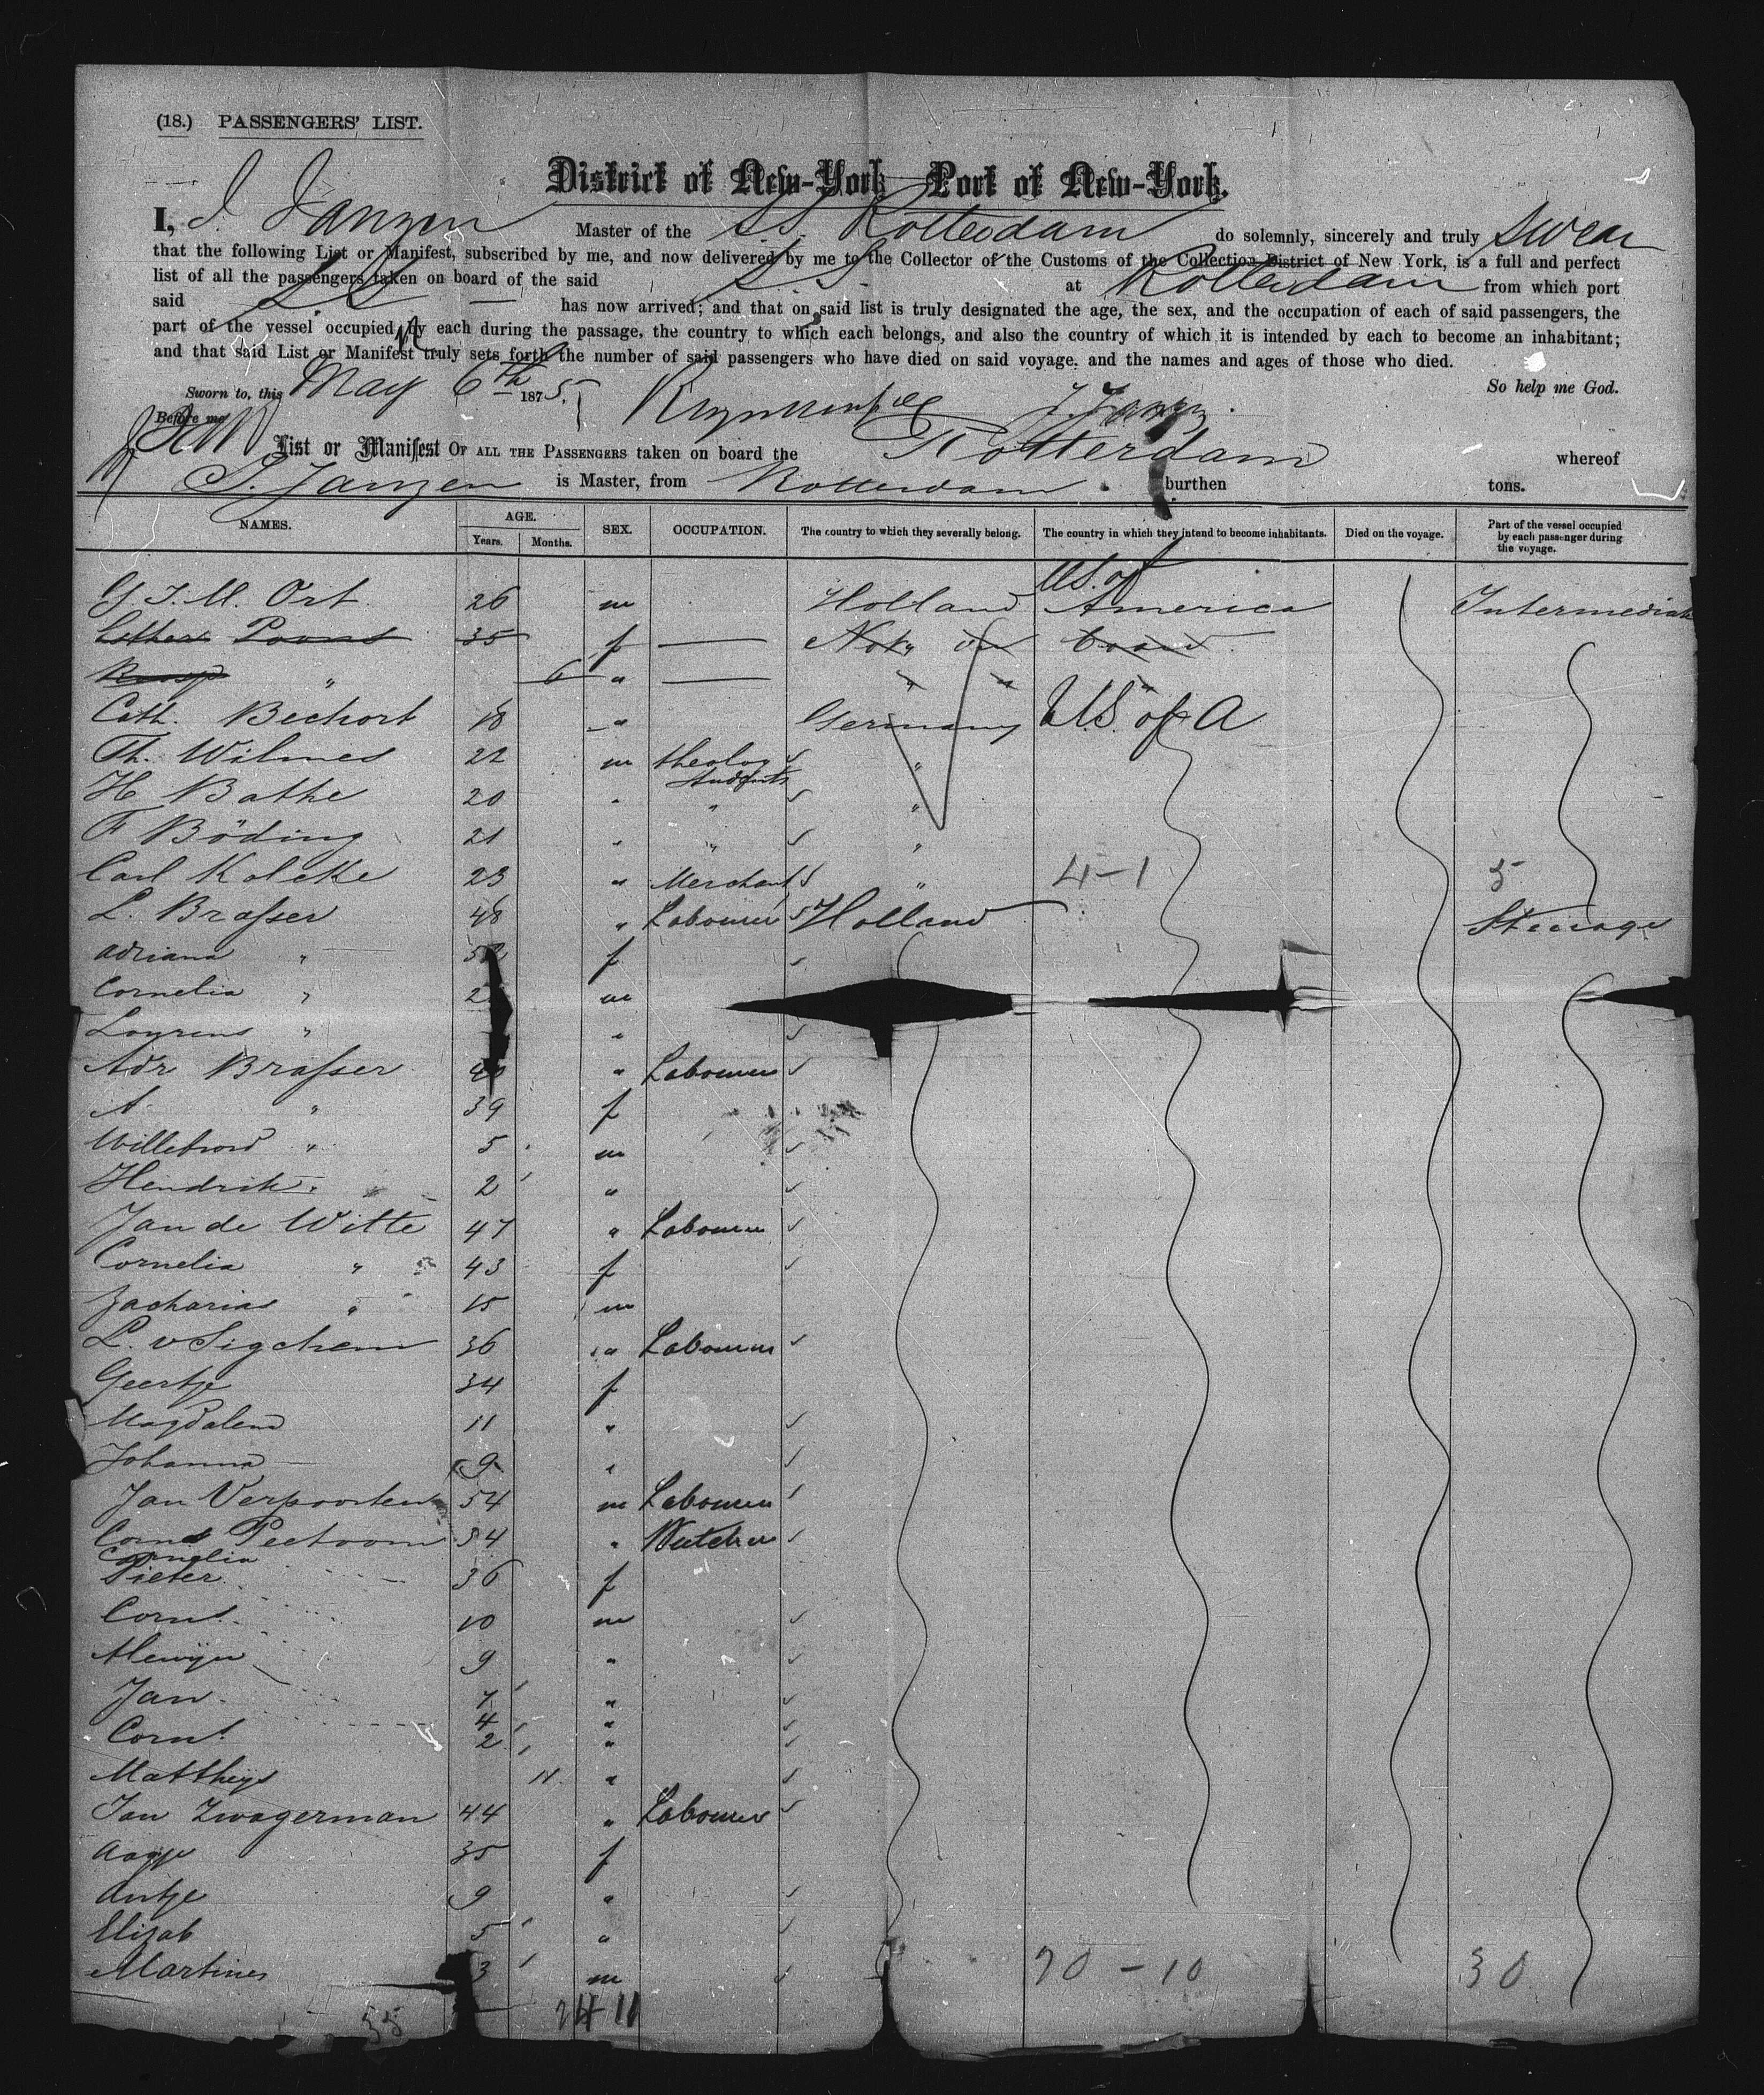 (18.) PASSENGERS' LIST.
District of New-York Port of New-York.
I, J. Janzen Master of the S.S. Rotterdam do solemnly, sincerely and truly swear
that the following List or Manifest, subscribed by me, and now delivered by me to the Collector of the Customs of the Collection District of New York, is a full and perfect
list of all the passengers taken on board of the said S.S. at Rotterdam from which port
said S.S. has now arrived; and that on said list is truly designated the age, the sex, and the occupation of each of said passengers, the
part of the vessel occupied by each during the passage, the country to which each belongs, and also the country of which it is intended by each to become an inhabitant;
and that said List or Manifest truly sets forth the number of said passengers who have died on said voyage, and the names and ages of those who died.
Sworn to, this May 6th 1875. J. Janzen So help me God.
Before me
List or Manifest OF ALL THE PASSENGERS taken on board the Rotterdam whereof
J. Janzen is Master, from Rotterdam burthen tons.
NAMES. AGE. Years. Months. SEX. OCCUPATION. The country to which they severally belong. The country in which they intend to become inhabitants. Died on the voyage. Part of the vessel occupied by each passenger during the voyage.
G J. M. Ort 26 m Holland U.S. of America Intermediate
Esther Poons 35 f — Not on board
" 6 " — " " "
Cath. Bechort 18 " Germany U.S. of A
Th. Wilmes 22 m theolog students "
H Bathe 20 " " "
F Böding 21 " " "
Carl Koletke 23 " Merchant " 4-1 5
L. Brasser 48 " Labourer Holland Steerage
Adriana " 52 f
Cornelia " 2 m
Lourens " "
Adr Brasser 4 " Labourer
A " 39 f
Willebrord " 5 m
Hendrik " 2 "
Jan de Witte 47 " Labourer
Cornelia " 43 f
Zacharias " 15 m
L. v Sigchem 36 " Labourer
Geertje 34 f
Magdalena 11 "
Johanna 9 "
Jan Verpoorten 54 m Labourer
Corns Peetoom 34 " Butcher
Cornelia
Pieter 36 f
Corns. 10 m
9 "
Jan 7 "
4 "
Corns. 2 "
Mattheys 11 "
Jan Zwagerman 44 " Labourer
Aagje 35 f
Antje 9 "
Elizab 5 "
Martines 3 m 20-10 30
35 24-11